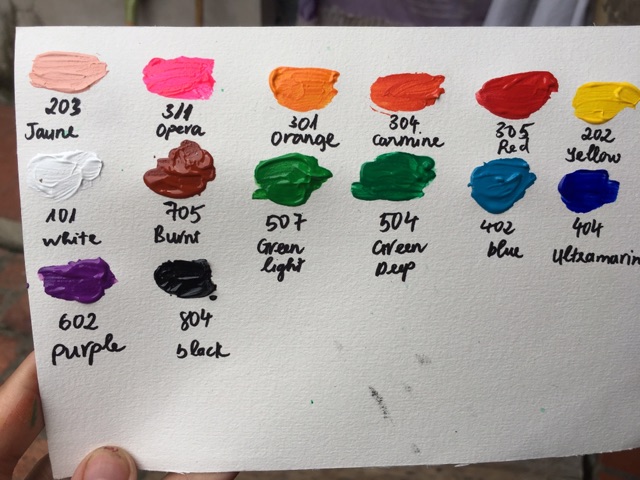 203
Jaune
311
Opera
301
Orange
304
Carmine
305
Red
202
Yellow
101
white
705
Burnt
507
Green
light
504
Green
Deep
402
blue
404
Ultramarin
602
purple
804
black